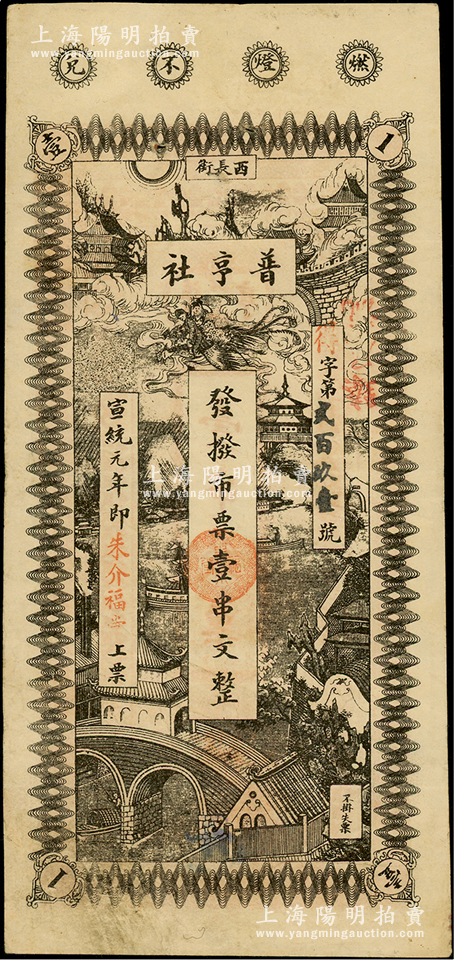 上海陽明拍賣
www.yangmingauction.com
燃燈不兌
壹
1
西長街
普亨社
字第弍百玖壹號
發撥市票壹串文整
宣統元年即朱介福上票
上海陽明拍賣
www.yangmingauction.com
不掛失票
1
上海陽明拍賣
www.yangmingauction.com